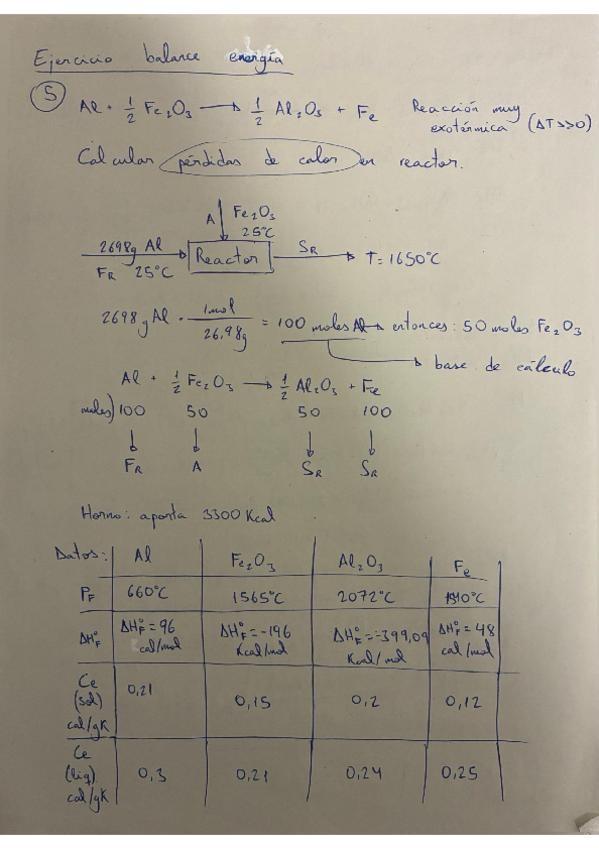 Ejercicio balance energía
5 Al + 1/2 Fe2O3 → 1/2 Al2O3 + Fe Reacción muy
exotérmica (ΔT>>0)
Calcular pérdidas de calor en reactor.
A Fe2O3
25°C
2698g Al Reactor SR → T=1650°C
FR 25°C
2698 g Al · 1mol / 26,98g = 100 moles Al → entonces: 50 moles Fe2O3
base de cálculo
Al + 1/2 Fe2O3 → 1/2 Al2O3 + Fe
moles) 100 50 50 100
FR A SR SR
Horno: aporta 3300 Kcal
Datos: Al Fe2O3 Al2O3 Fe
PF 660°C 1565°C 2072°C °C
ΔH°F ΔH°F=96 cal/mol ΔH°F=-196 Kcal/mol ΔH°F=-399,09 Kcal/mol ΔH°F=48 cal/mol
Ce (sol) cal/gK 0,21 0,15 0,2 0,12
Ce (liq) cal/gK 0,3 0,21 0,24 0,25